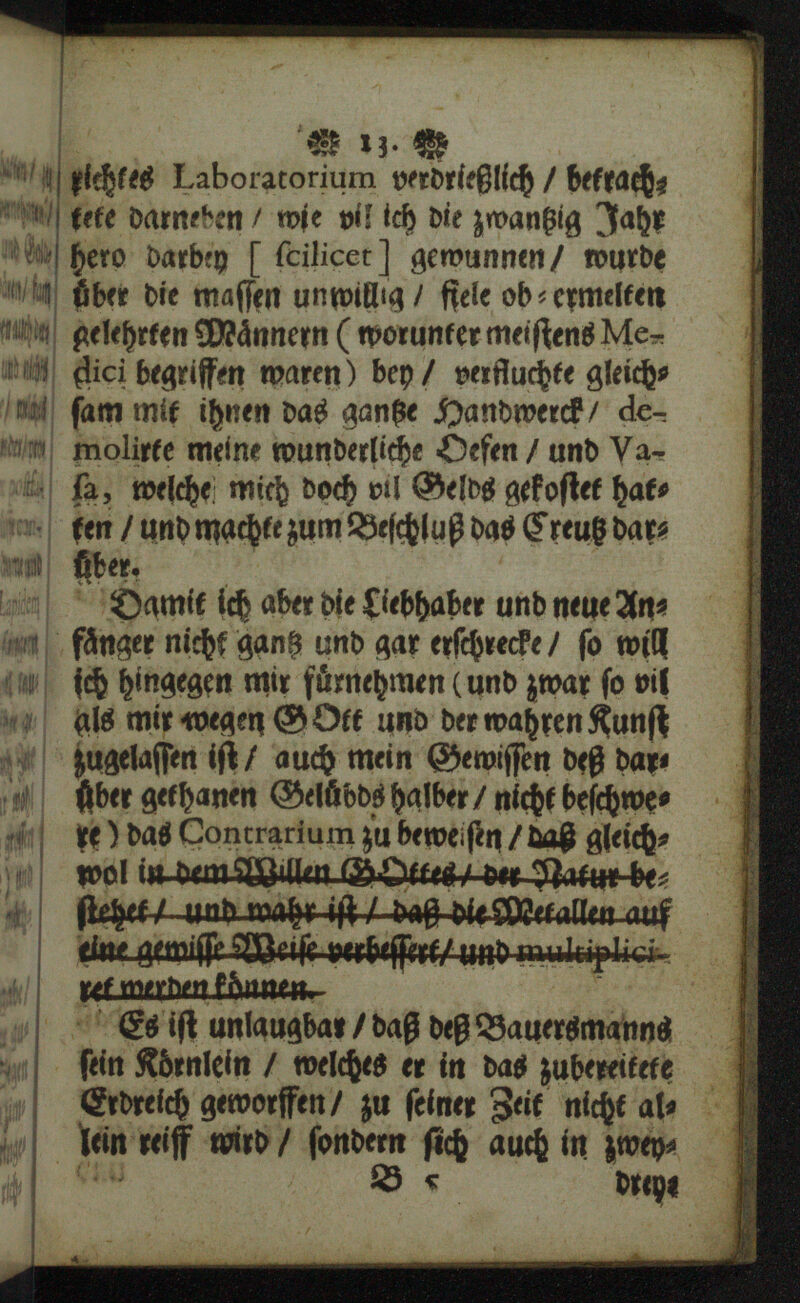 13.
richtes Laboratorium verdrießlich / betrach⸗
tete darneben / wie vil ich die zwantzig Jahr
hero darbey [ ſcilicet ] gewunnen / wurde
über die maſſen unwillig / fiele ob⸗ermelten
gelehrten Männern ( worunter meiſtens Me-
dici begriffen waren) bey / verfluchte gleich⸗
ſam mit ihnen das gantze Handwerck / de-
molirte meine wunderliche Oefen / und Va-
ſa, welche mich doch vil Gelds gekoſtet hat⸗
ten / und machte zum Beſchluß das Creutz dar⸗
über.
Damit ich aber die Liebhaber und neue An⸗
fänger nicht gantz und gar erſchrecke / ſo will
ich hingegen mir fürnehmen (und zwar ſo vil
als mir wegen GOtt und der wahren Kunſt
zugelaſſen iſt / auch mein Gewiſſen deß dar⸗
über gethanen Gelübds halber / nicht beſchwe⸗
re ) das Contrarium zu beweiſen / daß gleich⸗
wol in dem Willen GOttes / der Natur be⸗
ſtehet / und wahr iſt / daß die Metallen auf
eine gewiſſe Weiſe verbeſſert / und multiplici-
ret werden können.
Es iſt unlaugbar / daß deß Bauersmanns
ſein Körnlein / welches er in das zubereitete
Erdreich geworffen / zu ſeiner Zeit nicht al⸗
lein reiff wird / ſondern ſich auch in zwey⸗
B 5 drey⸗